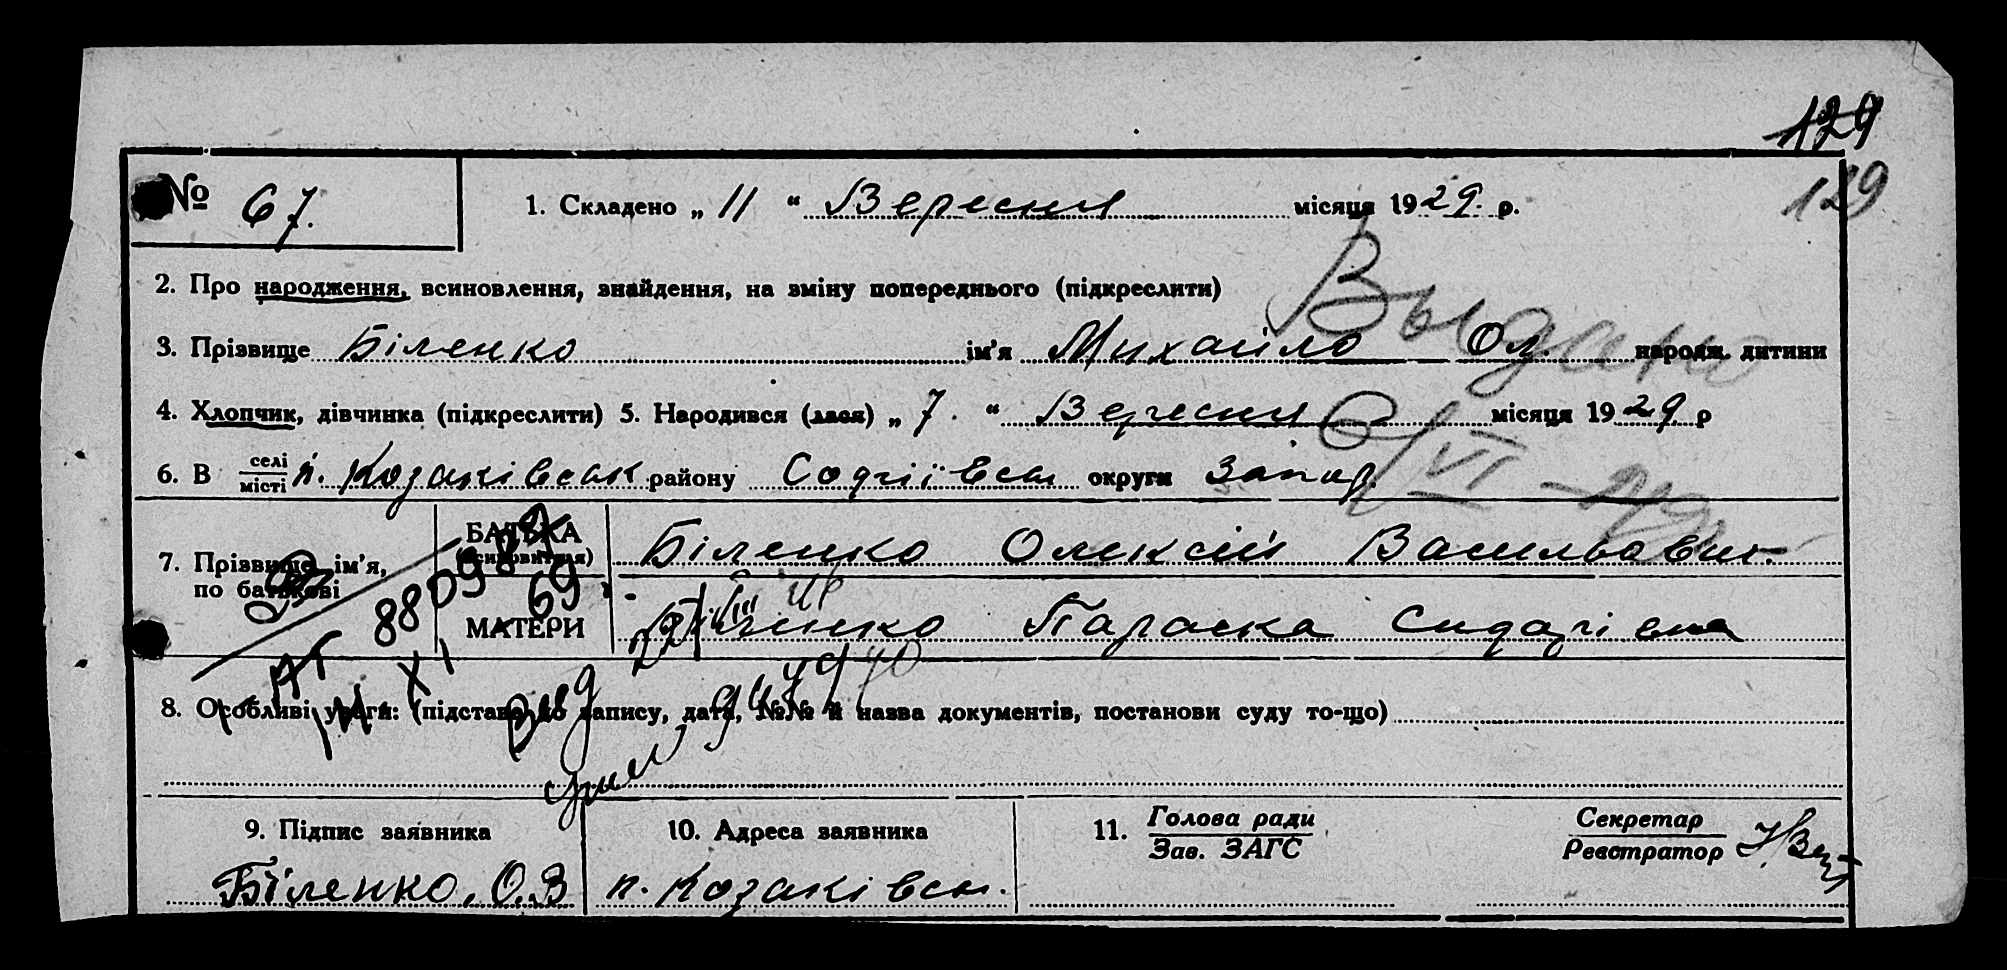 129
129
№ 67. 1. Складено „ 11 “ Вересня місяця 1929 р.
2. Про народження, всиновлення, знайдення, на зміну попереднього (підкреслити)
Выдано
3. Прізвище Біленко ім'я Михайло Ол. народж. дитини
4. Хлопчик, дівчинка (підкреслити) 5. Народився (лася) „ 7. “ Вересня місяця 1929 р
6. В селі місті п. Козаківськ району Софіївськ округи Запор.
VI
7. Прізвище, ім'я, по батькові БАТЬКА Біленко Олексій Васильович
69
МАТЕРИ Біленко Параска Сидорівна
8. Особливі уваги: (підстава до запису, дата, №№ й назва документів, постанови суду то-що)
9. Підпис заявника 10. Адреса заявника 11. Голова ради Зав. ЗАГС Секретар Реєстратор
Біленко, О.В п. Козаківськ.